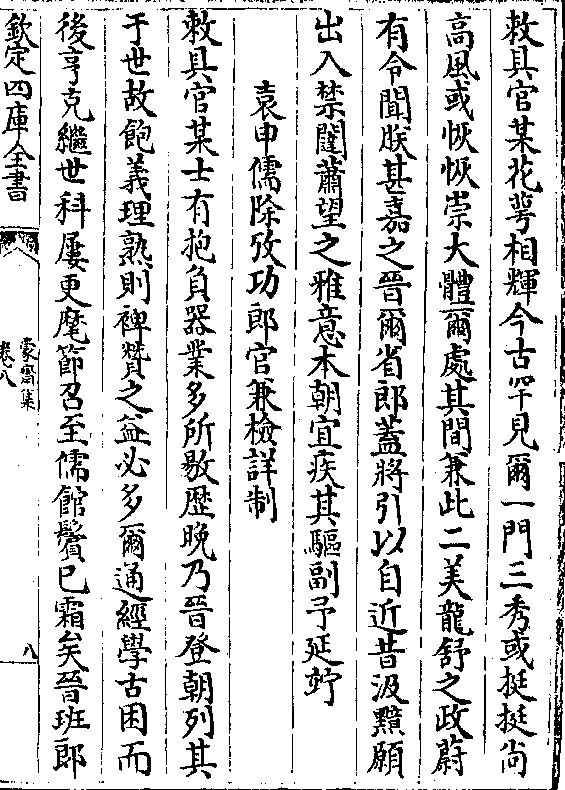 敕具官某花萼相輝今古罕見爾一門三秀或挺挺尚
高風或恢恢崇大體爾處其間兼此二美龍舒之政蔚
有令聞朕甚嘉之晉爾省郎蓋將引以自近昔汲黯願
出入禁闥蕭望之雅意本朝宜疾其驅副予延竚
袁申儒除攷功郎官兼檢詳制
敕具官某士有抱負器業多所敭歴晚乃晉登朝列其
于世故飽義理熟則裨贊之益必多爾通經學古困而
後亨克繼世科屢更麾節召至儒館鬢已霜矣晉班郎
欽定四庫全書
蒙齋集
卷八
八